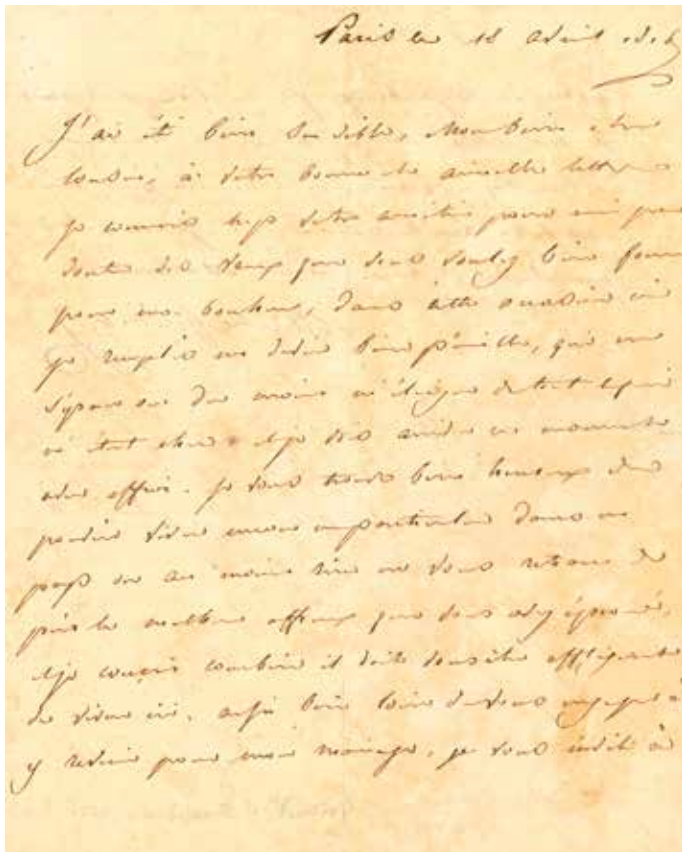 Paris le 18 avril
J'ai été bien sensible, mon bien cher
cousin, à votre bonne et aimable lettre
je connois trop votre amitié pour moi pour
douter des vœux que vous voulez bien former
pour mon bonheur, dans cette occasion ci
je remplis un devoir bien pénible, qui me
sépare ou du moins m'éloigne de tout ce qui
m'était cher et je vois arriver ce moment
avec effroi. je vous trouve bien heureux de
pouvoir vivre encore en particulier dans un
pays où au moins rien ne vous retrace de
plus le malheur affreux que vous avez éprouvé,
et je conçois combien il doit vous être affligeant
de vivre ici. aussi bien loin de vous engager à
y revenir pour mon mariage, je vous invite à